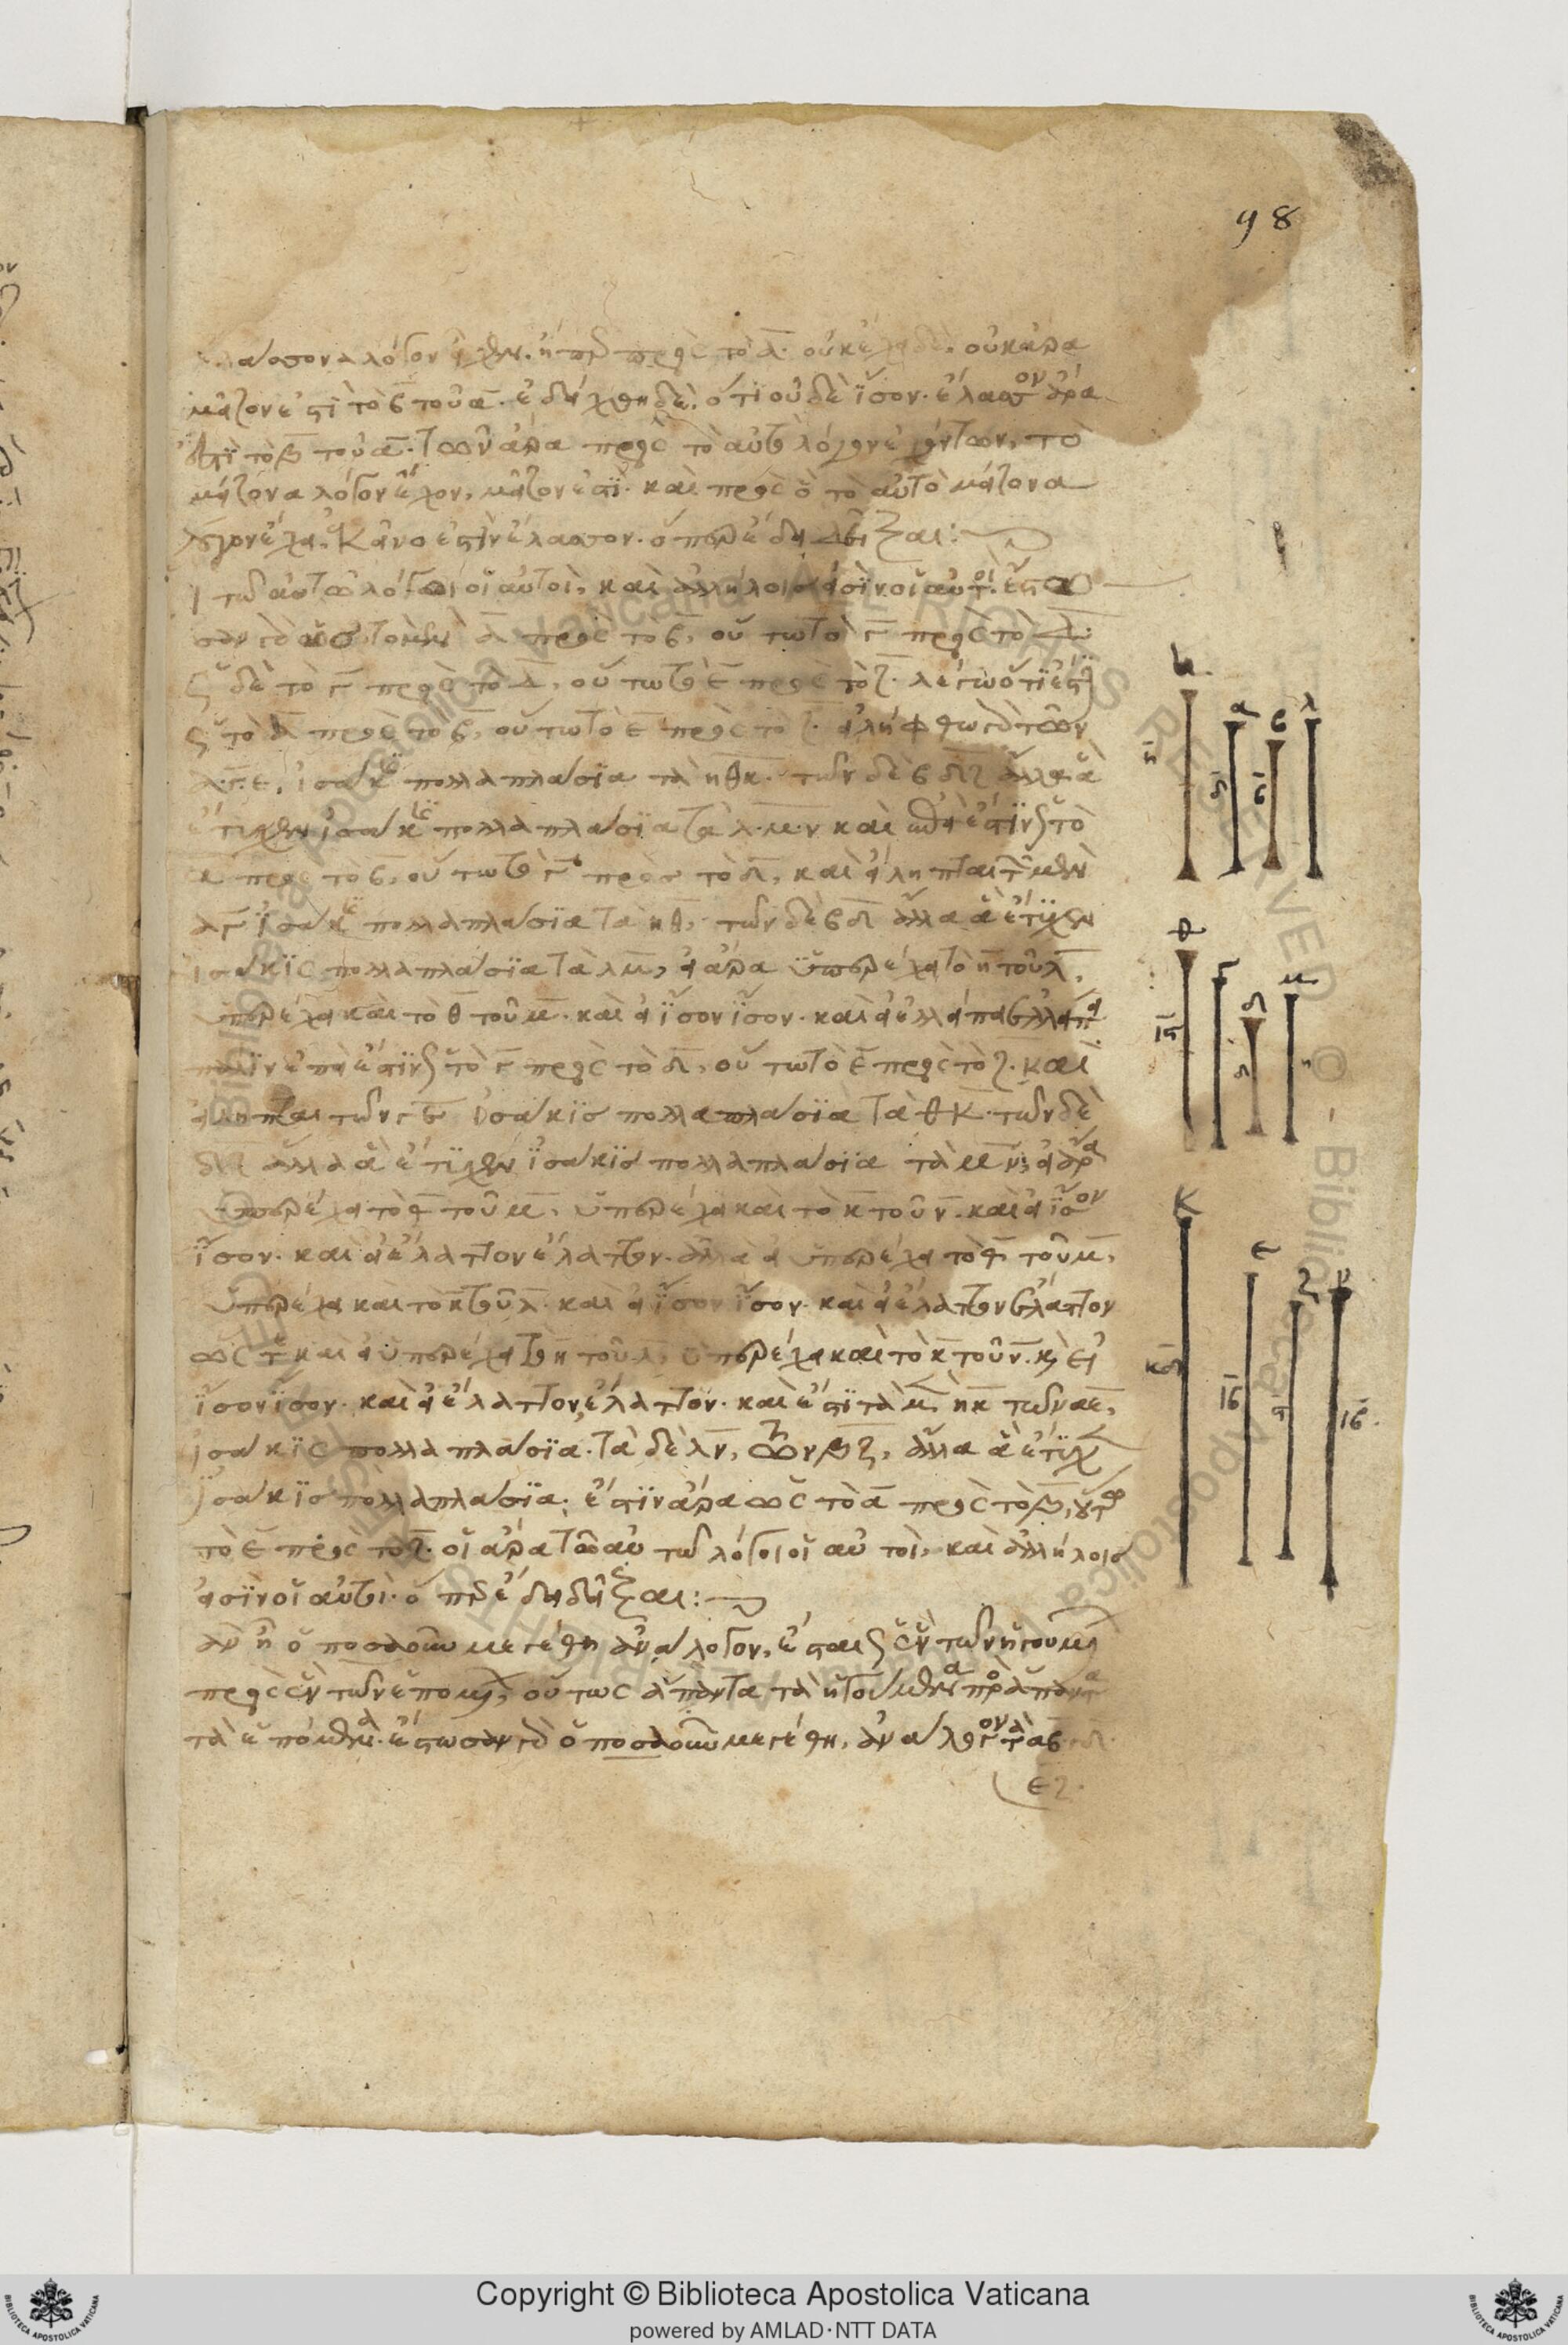 98
λόγον ἔχειν, ἤπερ πρὸς τὸ α̅. οὐκ ἔχει δέ. οὐκ ἄρα
μεῖζόν ἐστι τὸ β̅ τοῦ α̅. ἐδείχθη δὲ, ὅτι οὐδὲ ἴσον. ἔλασσον ἄρα
ἐστὶ τὸ β̅ τοῦ α̅. τῶν ἄρα πρὸς τὸ αὐτὸ λόγον ἐχόντων, τὸ
μείζονα λόγον ἔχον, μεῖζόν ἐστι. καὶ πρὸς ὃ τὸ αὐτὸ μείζονα
λόγον ἔχει, κἀκεῖνο ἐστὶν ἔλασσον. ὅπερ ἔδει δεῖξαι:
ι τῷ αὐτῷ λόγωι οἱ αὐτοὶ, καὶ ἀλλήλοις εἰσὶν οἱ αὐτοί. ἔστω
σαν γὰρ ὡς τὸ μὲν α̅ πρὸς τὸ β̅, οὕτω τὸ γ̅ πρὸς τὸ δ̅.
ὡς δὲ τὸ γ̅ πρὸς τὸ δ̅, οὕτω τὸ ε̅ πρὸς τὸ ζ̅. λέγω ὅτι ἐστὶν
ὡς τὸ α̅ πρὸς τὸ β̅, οὕτω τὸ ε̅ πρὸς τὸ ζ̅. εἰλήφθω γὰρ τῶν
α.γ.ε, ἰσάκις πολλαπλάσια τὰ ηθκ. τῶν δὲ βδζ ἄλλα ἃ
ἔτυχεν ἰσάκις πολλαπλάσια τὰ λ.μ.ν καὶ ἐπεί ἐστιν ὡς τὸ
α̅ πρὸς τὸ β̅, οὕτω τὸ γ̅ πρὸς τὸ δ̅, καὶ εἴληπται τῶν μὲν
αγ ἰσάκις πολλαπλάσια τὰ ηθ, τῶν δὲ βδ ἄλλα ἃ ἔτυχεν
ἰσάκις πολλαπλάσια τὰ λμ, εἰ ἄρα ὑπερέχει τὸ η̅ τοῦ λ̅,
ὑπερέχει καὶ τὸ θ̅ τοῦ μ̅. καὶ εἰ ἴσον ἴσον. καὶ εἰ ἐλλείπει ἐλλείπει
πάλιν ἐπεί ἐστιν ὡς τὸ γ̅ πρὸς τὸ δ̅, οὕτω τὸ ε̅ πρὸς τὸ ζ̅. καὶ
εἴληπται τῶν γε ἰσάκις πολλαπλάσια τὰ θκ. τῶν δὲ
δζ ἄλλα ἃ ἔτυχεν ἰσάκις πολλαπλάσια τὰ μν, εἰ ἄρα
ὑπερέχει τὸ θ̅ τοῦ μ̅, ὑπερέχει καὶ τὸ κ̅ τοῦ ν̅. καὶ εἰ ἴσον
ἴσον. καὶ εἰ ἔλαττον ἔλαττον. ἀλλὰ εἰ ὑπερέχει τὸ θ̅ τοῦ μ̅,
ὑπερέχει καὶ τὸ η̅ τοῦ λ̅. καὶ εἰ ἴσον ἴσον. καὶ εἰ ἔλαττον ἔλαττον
ὥστε καὶ εἰ ὑπερέχει τὸ η̅ τοῦ λ̅, ὑπερέχει καὶ τὸ κ̅ τοῦ ν̅. καὶ εἰ
ἴσον ἴσον. καὶ εἰ ἔλαττον, ἔλαττον. καὶ ἔστι τὰ μὲν ηκ τῶν αε,
ἰσάκις πολλαπλάσια. τὰ δὲ λν, τῶν βζ, ἄλλα ἃ ἔτυχεν
ἰσάκις πολλαπλάσια. ἔστιν ἄρα ὡς τὸ α̅ πρὸς τὸ β̅, οὕτω
τὸ ε̅ πρὸς τὸ ζ̅. οἱ ἄρα τῶ αὐτῶ λόγοι οἱ αὐτοὶ, καὶ ἀλλήλοις
εἰσὶν οἱ αὐτοί. ὅπερ ἔδει δεῖξαι:
ἐὰν ἦ ὁποσαοῦν μεγέθη ἀνάλογον, ἔσται ὡς ἓν τῶν ἡγουμένων
πρὸς ἓν τῶν ἑπομένων, οὕτως ἅπαντα τὰ ἡγούμενα πρὸς ἅπαντα
τὰ ἑπόμενα. ἔστωσαν γὰρ ὁποσαοῦν μεγέθη ἀνάλογον τὰ αβ γδ
εζ.
η α β λ
θ γ δ μ
κ ε ζ ν
κδ ιβ ϛ ιβ